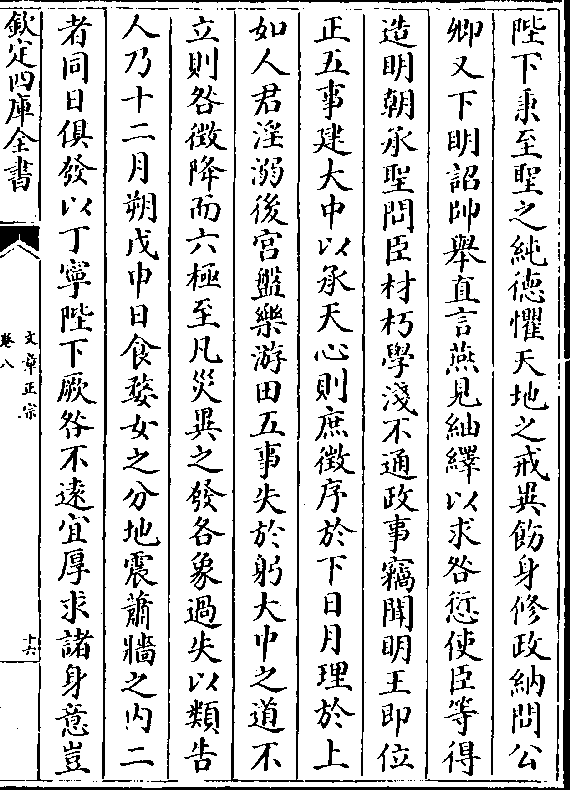 陛下秉至聖之純德懼天地之戒異飭身修政納問公
卿又下明詔帥舉直言燕見紬繹以求咎愆使臣等得
造明朝承聖問臣材朽學淺不通政事竊聞明王即位
正五事建大中以承天心則庶徵序於下日月理於上
如人君淫溺後宮盤樂游田五事失於躬大中之道不
立則咎徵降而六極至凡災異之發各象過失以類告
人乃十二月朔戊申日食婺女之分地震蕭牆之内二
者同日俱發以丁寧陛下厥咎不逺宜厚求諸身意豈
欽定四庫全書
文章正宗
卷八
十六